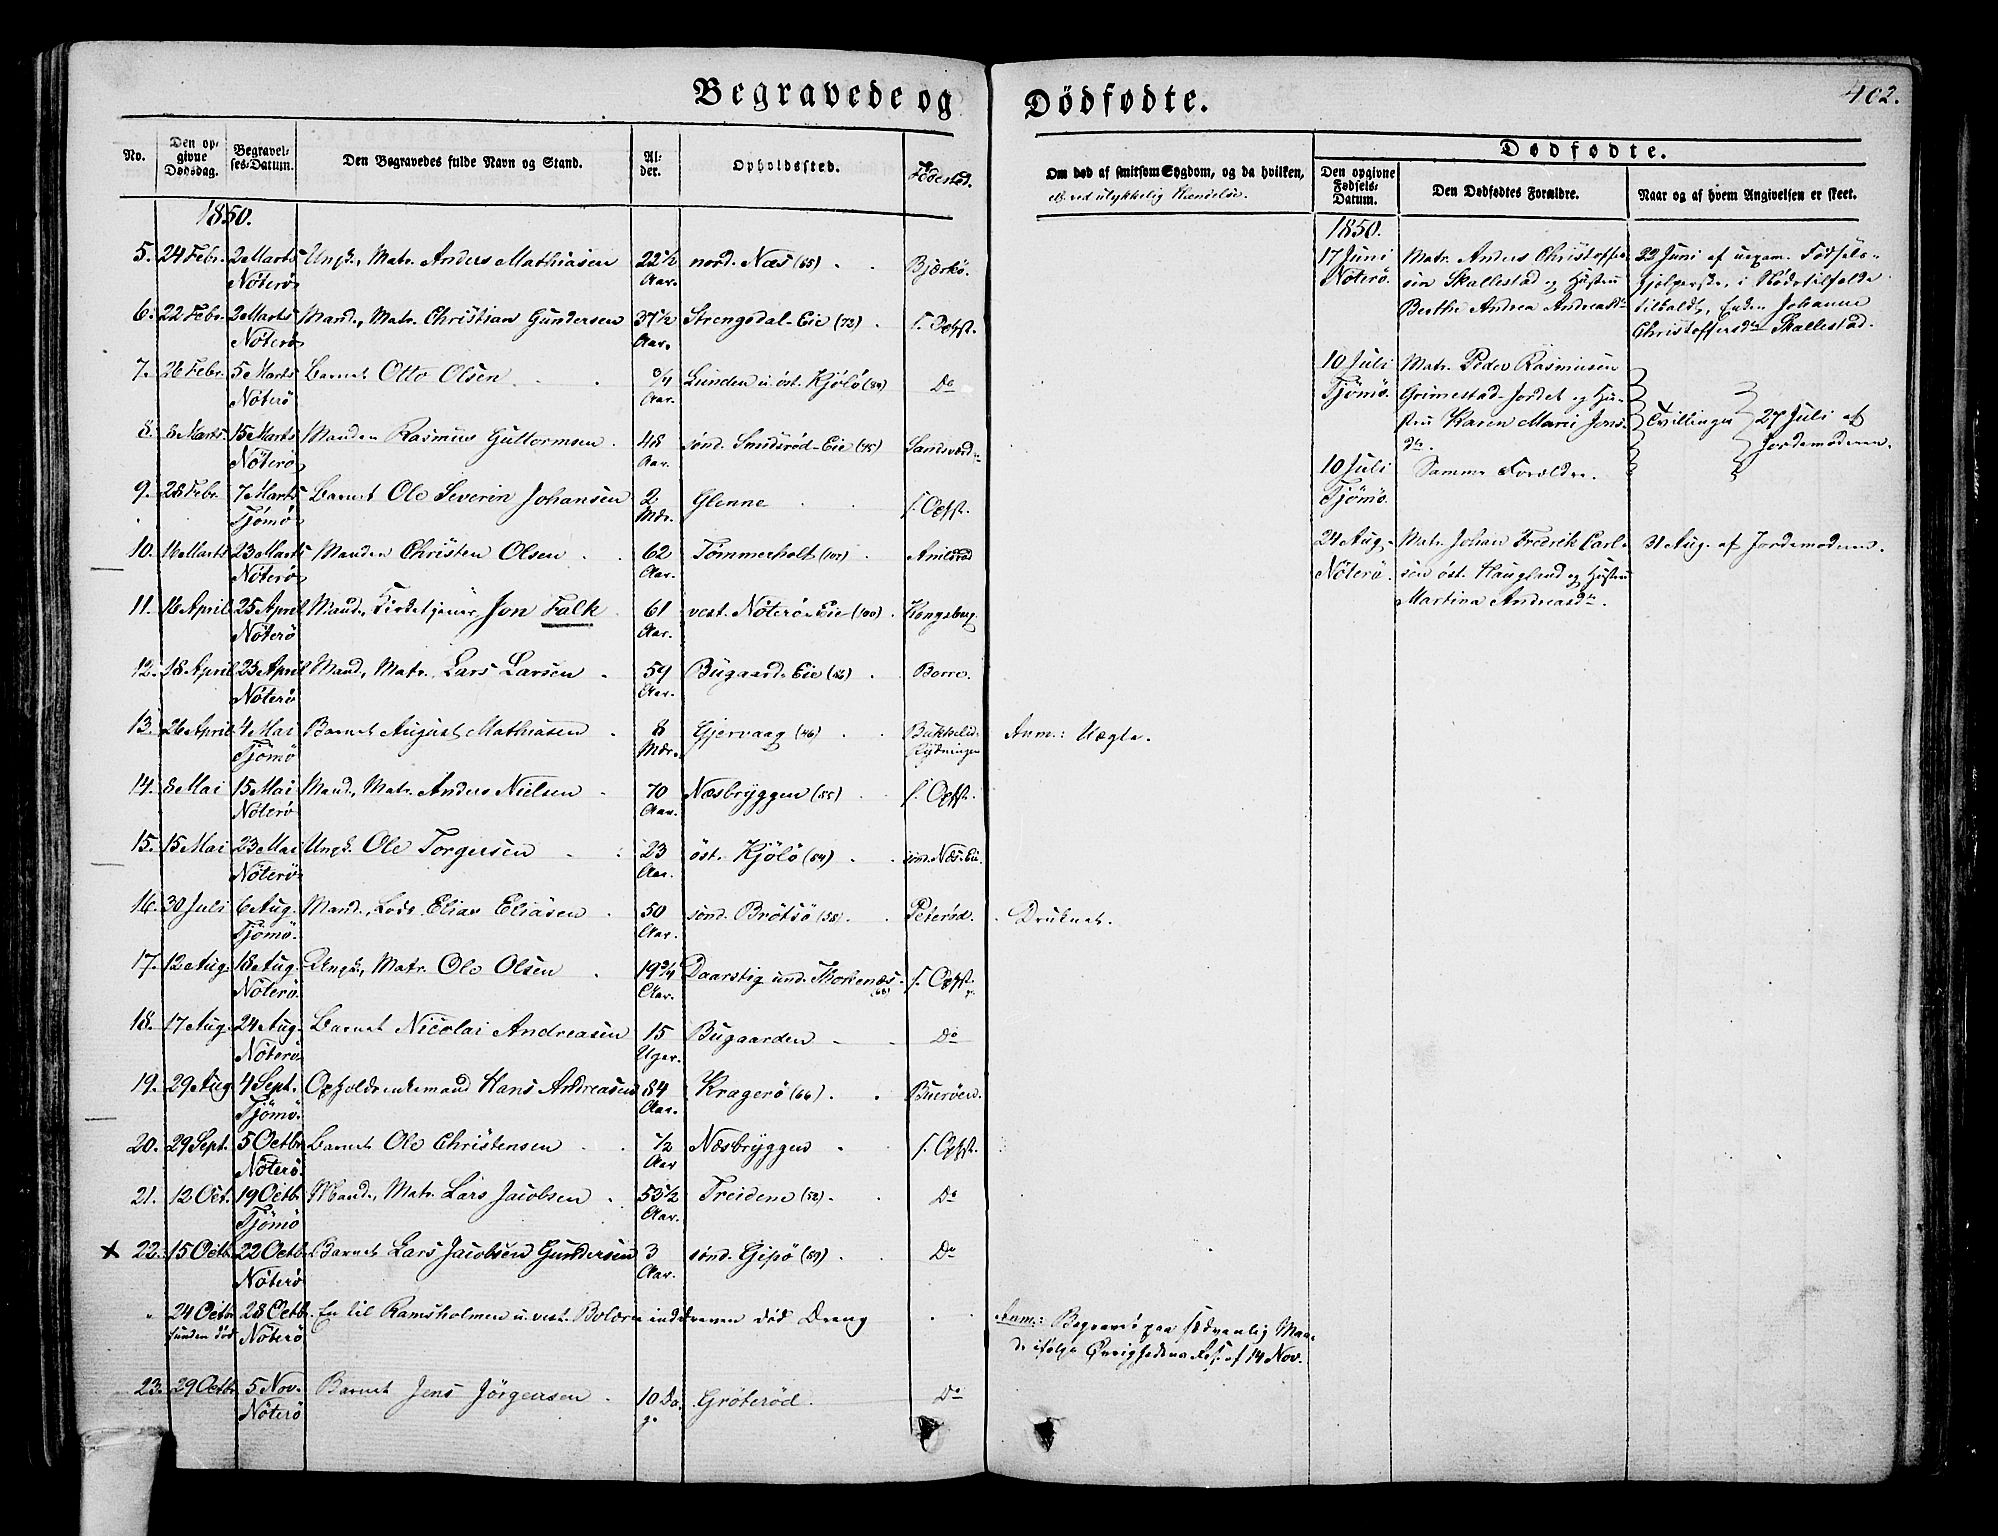 Begravede og Dødfødte.
402.
No. Den opgivne Dødsdag. Begravelses-Datum. Den Begravedes fulde Navn og Stand. Alder. Opholdssted. Fødested.
Om død af smitsom Sygdom, og da hvilken, el. ved ulykkelig Hændelse.
Dødfødte.
Den opgivne Fødsels-Datum. Den Dødfødtes Forældre. Naar og af hvem Angivelsen er skeet.
1850.
5. 24 Febr. 2 Marts Nöterö Ungk., Matr. Anders Mathiasen 22½ Aar. nord. Næs (65) Bjerkö.
6. 22 Febr. 2 Marts Nöterö Mand, Matr. Christian Gundersen 37½ Aar. Strengsdal-Eie (73) s. Opfst.
7. 26 Febr. 5 Marts Nöterö Barnet Otto Olsen ¾ Aar. Lunden u. öst. Kjölö (84) Do
8. 8 Marts 15 Marts Nöterö Manden Rasmus Guttormsen 48 Aar. sönd. Smidsröd-Eie (45)
9. 28 Febr. 7 Marts Tjömö Barnet Ole Severin Johansen 2 Mdr. Glenne s. Opfst.
10. 16 Marts 23 Marts Nöterö Manden Christen Olsen 62 Aar. Tömmerholt (107)
11. 18 April 25 April Nöterö Mand, Kirketjener Jon Falk 61 Aar. vest. Nöterö-Eie (100) Kongsberg.
12. 18 April 23 April Nöterö Mand, Matr. Lars Larsen 59 Aar. Bugaard-Eie (86) Borre.
13. 26 April 4 Mai Tjömö Barnet August Mathiasen 8 Mdr. Gjervaag (46) Rydningen Anm.: Uægte.
14. 8 Mai 15 Mai Nöterö Mand, Matr. Anders Nielsen 70 Aar. Næsbryggen (55) s. Opfst.
15. 15 Mai 23 Mai Nöterö Ungk. Ole Torgersen 23 Aar. öst. Kjölö (84) sönd. Næs-Eie.
16. 30 Juli 6 Aug. Tjömö. Mand, Lods Elias Eliasen 50 Aar. sönd. Brötsö (58) Peteröd. Druknet.
17. 12 Aug. 18 Aug. Nöterö. Ungk., Matr. Ole Olsen 19¾ Aar. Daarstig und. Thorkenæs (68) s. Opfst.
18. 17 Aug. 24 Aug. Nöterö. Barnet Nicolai Andreasen 15 Uger. Bugaarden Do
19. 29 Aug. 4 Sept. Tjömö. Opholdsenkemand Hans Andreasen 84 Aar. Kragerö (66) Buerven.
20. 29 Sept. 5 Octbr. Nöterö. Barnet Ole Christensen ½ Aar Næsbryggen s. Opfst.
21. 12 Oct. 19 Octb. Tjömö Mand, Matr. Lars Jacobsen 53½ Aar. Treidene (52) Do
× 22. 15 Octb. 22 Octb. Nöterö Barnet Lars Jacobsen Gundersen 3 Aar. sönd. Gipö (89) Do
" 24 Octbr. funden död 28 Octbr. Nöterö En til Ramsholmen u. vest. Bolærn inddreven död Dreng
Anm.: Begravet paa sædvanlig Maade ifølge Øvrighedens Res. af 14 Nov.
23. 29 Octb. 5 Nov. Nöterö Barnet Jens Jörgensen 10 Dage Gröteröd. Do
1850.
17 Juni Nöterö. Matr. Anders Christoffersen Skallestad og Hustru Berthe Andrea Andreasdr 22 Juni af uexam. Fødselshjelperske, i Nødstilfælde tilkaldt, Enken Johanne Christoffersdr Skallestad.
10 Juli Tjömö. Matr. Peder Rasmusen Grimestad-Jordet og Hustru Karen Marie Jonsdr. Tvillinger 27 Juli af Jordemoderen.
10 Juli Tjömö. Samme Forældre.
24 Aug. Nöterö. Matr. Johan Fredrik Carlsen öst. Haugland og Hustru Martina Andreasdr. 31 Aug. af Jordemoderen.